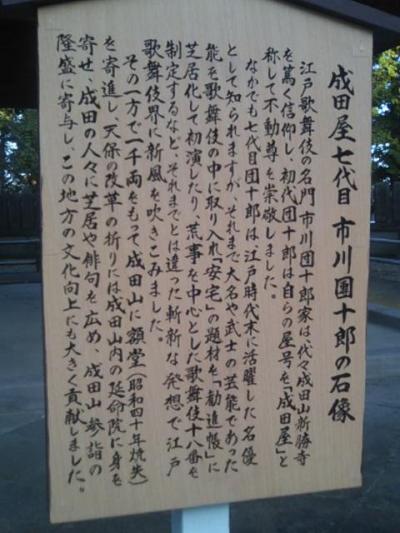 成田屋七代目 市川團十郎の石像
江戸歌舞伎の名門市川団十郎家は、代々成田山新勝寺
を篤く信仰し、初代団十郎は自らの屋号を「成田屋」と
称して不動尊を崇敬しました。
なかでも七代目団十郎は、江戸時代末に活躍した名優
として知られますが、それまで大名や武士の芸能であった
能を歌舞伎の中に取り入れ「安宅」の題材を「勧進帳」に
芝居化して初演したり、荒事を中心とした歌舞伎十八番を
制定するなど、それまでとは違った斬新な発想で江戸
歌舞伎界に新風を吹きこみました。
その一方で一千両をもって成田山に額堂(昭和四十年焼失)
を寄進し、天保の改革の折りには成田山内の延命院に身を
寄せ、成田の人々に芝居や俳句を広め、成田山参詣の
隆盛に寄与し、この地方の文化向上にも大きく貢献しました。